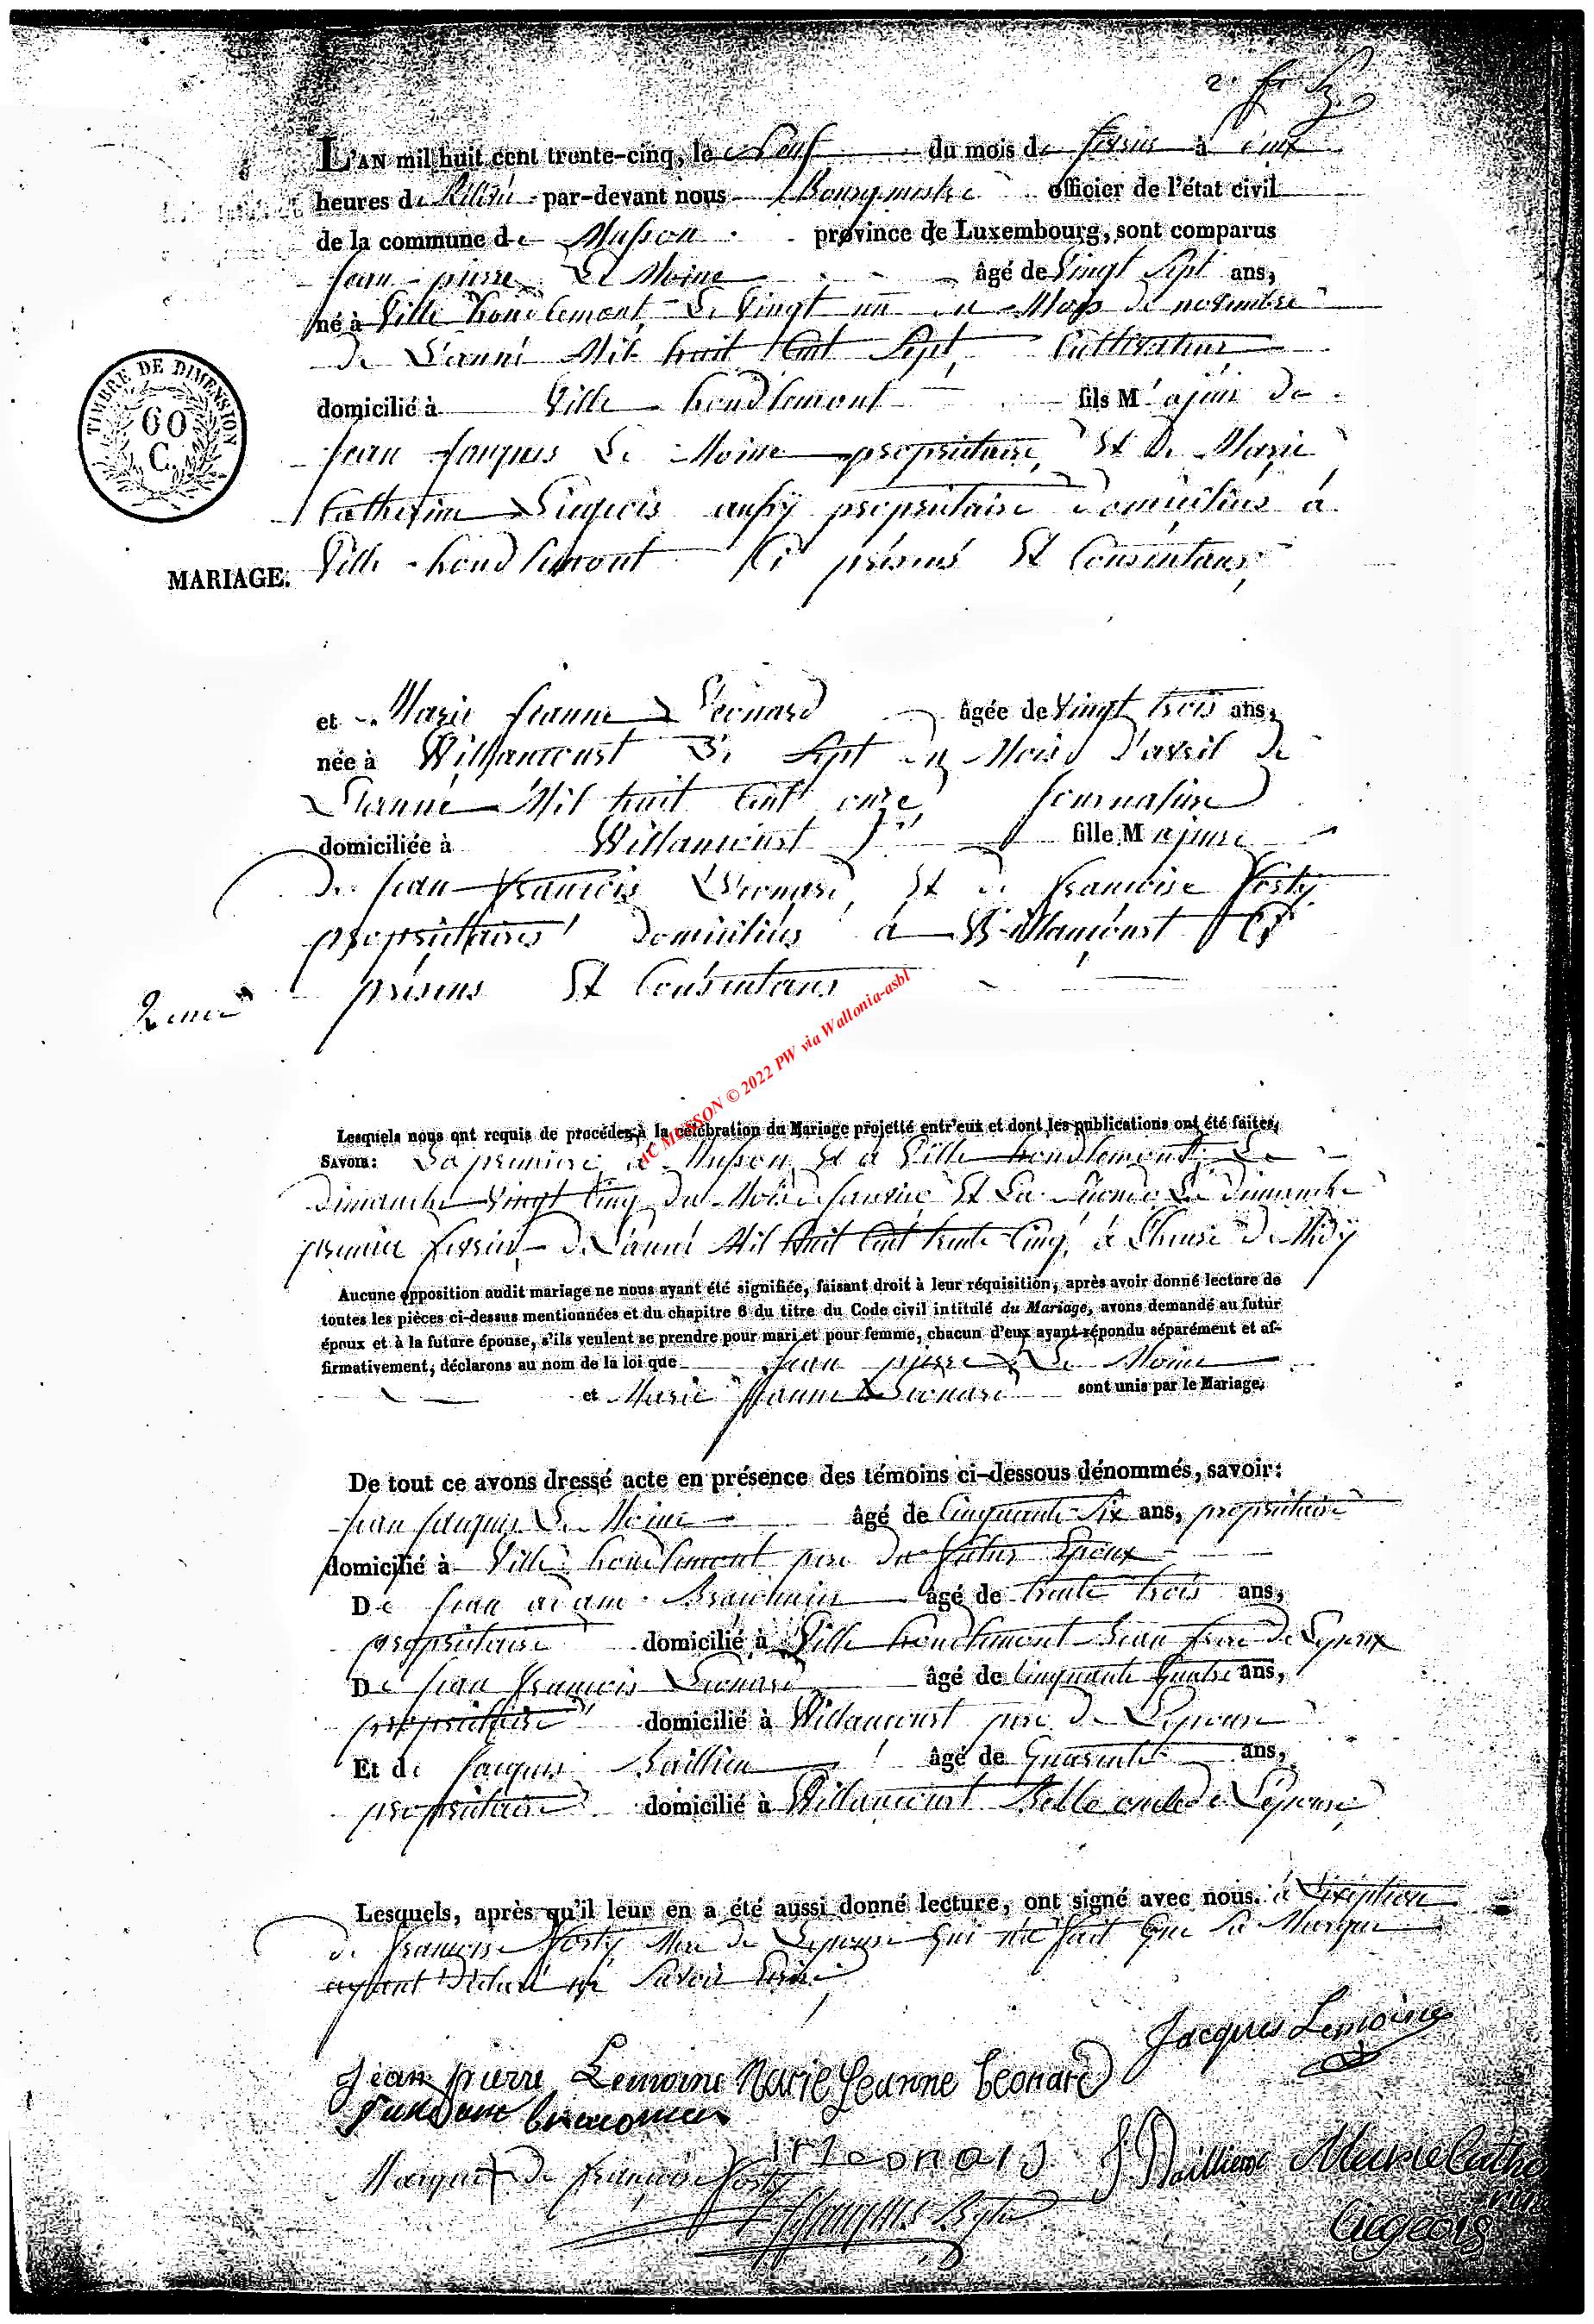 L'AN mil huit cent trente-cinq, le Neuf du mois de fevrier à
heures de par-devant nous Bourgmestre officier de l'état civil
de la commune de Musson province de Luxembourg, sont comparus
Jean pierre Le Moine âgé de Vingt Sept ans,
né à Ville houdlemont Le Vingt un du Mois de novembre
de L'anné Mil huit Cent Sept, Cultivateur
domicilié à Ville houdlemont fils Majeur de
Jean Jacques Le Moine propriétaire, Et De Marie
Catherine Liegeois aussy propriétaire domiciliés à
MARIAGE. Ville houdlemont Ci présens Et Consentans,
et Marie Jeanne Léonard âgée de Vingt trois ans,
née à Willancourt Le Sept du Mois d'avril de
L'anné Mil huit Cent onze, Journalière
domiciliée à Willancourt fille Majeure
de Jean François Léonard, Et de Françoise Forty
propriétaires domiciliés à Willancourt Ci
présens Et Consentans
Lesquels nous ont requis de procéder à la célébration du Mariage projetté entr'eux et dont les publications ont été faites,
SAVOIR: La premiere à Musson Et à Ville houdlemont, Le
dimanche Vingt Cinq du Mois de Janvier Et La seconde Le dimanche
premier fevrier de L'anné Mil huit Cent trente Cinq, à L'heure de Midy
Aucune opposition audit mariage ne nous ayant été signifiée, faisant droit à leur réquisition, après avoir donné lecture de
toutes les pièces ci-dessus mentionnées et du chapitre 6 du titre du Code civil intitulé du Mariage, avons demandé au futur
époux et à la future épouse, s'ils veulent se prendre pour mari et pour femme, chacun d'eux ayant répondu séparément et af-
firmativement, déclarons au nom de la loi que Jean pierre Le Moine
et Marie Jeanne Léonard sont unis par le Mariage.
De tout ce avons dressé acte en présence des témoins ci-dessous dénommés, savoir:
Jean Jacques Le Moine âgé de Cinquante Six ans, propriétaire
domicilié à Ville houdlemont pere du futur Epoux
De Jean adam âgé de trente trois ans,
propriétaire domicilié à Ville houdlemont beau frere de Lepoux
De Jean François Léonard âgé de Cinquante Quatre ans,
propriétaire domicilié à Willancourt pere de Lepouse
Et de Jacques Baillieu âgé de Quarante ans,
propriétaire domicilié à Willancourt oncle de L'épouse
Lesquels, après qu'il leur en a été aussi donné lecture, ont signé avec nous. à L'exeption
de Françoise Forty Mere de Lepouse Qui n'a fait Que Sa Marque
ayant déclaré ne Savoir Ecrire
Jacques Lemoine
Jean pierre Lemoine Marie Jeanne Leonard
Marque de Françoise Forty Leonard J Baillieux Marie Cathe
rine
Liegeois
TIMBRE DE DIMENSION
60
C.
AC MUSSON © 2022 PW via Wallonia-asbl